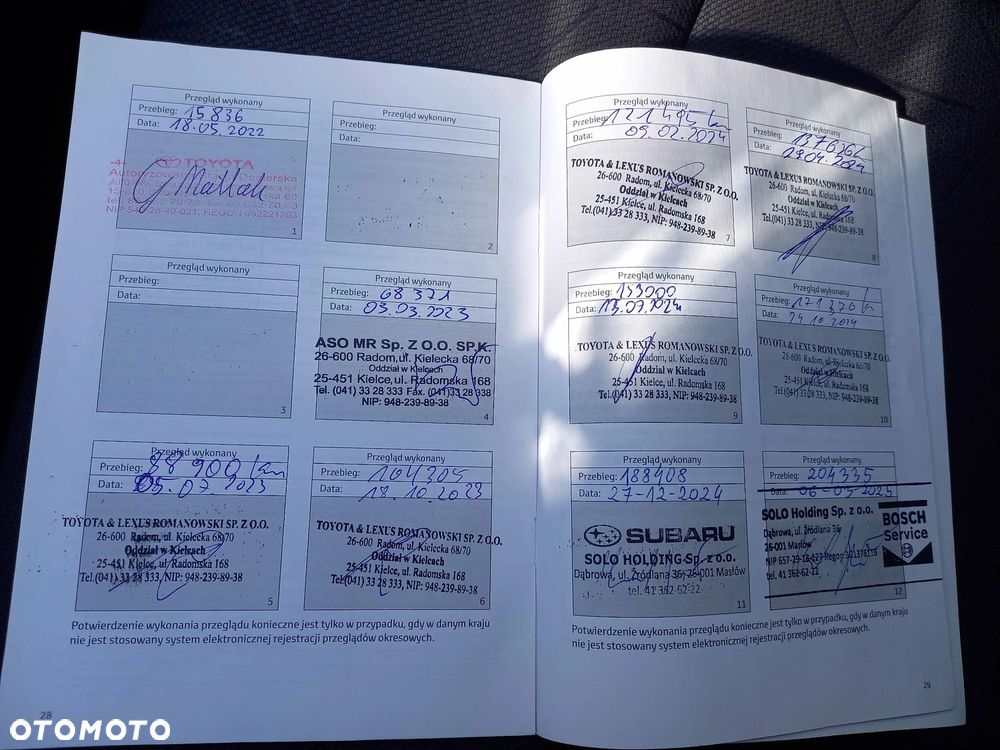 Przegląd wykonany
Przebieg: 15 836
Data: 18.05.2022
-4-
TOYOTA
Autoryzowana Dealerska
1
Przegląd wykonany
Przebieg:
Data:
2
Przegląd wykonany
Przebieg:
Data:
3
Przegląd wykonany
Przebieg: 68 371
Data: 03.03.2023
ASO MR Sp. Z O.O. SP.K.
26-600 Radom, ul. Kielecka 68/70
Oddział w Kielcach
25-451 Kielce, ul. Radomska 168
Tel. (041) 33 28 333 Fax. (041)33 28 338
NIP: 948-239-89-38
4
Przegląd wykonany
Przebieg: 88 900 km
Data: 05.07.2023
TOYOTA & LEXUS ROMANOWSKI SP. Z O.O.
26-600 Radom, ul. Kielecka 68/70
Oddział w Kielcach
25-451 Kielce, ul. Radomska 168
Tel.(041) 33 28 333, NIP: 948-239-89-38
5
Przegląd wykonany
Przebieg: 104305
Data: 18.10.2023
TOYOTA & LEXUS ROMANOWSKI SP. Z O.O.
26-600 Radom, ul. Kielecka 68/70
Oddział w Kielcach
25-451 Kielce, ul. Radomska 168
Tel.(041) 33 28 333, NIP: 948-239-89-38
6
Potwierdzenie wykonania przeglądu konieczne jest tylko w przypadku, gdy w danym kraju
nie jest stosowany system elektronicznej rejestracji przeglądów okresowych.
28
Przegląd wykonany
Przebieg: 121 495 km
Data: 09.02.2024
TOYOTA & LEXUS ROMANOWSKI SP. Z O.O.
26-600 Radom, ul. Kielecka 68/70
Oddział w Kielcach
25-451 Kielce, ul. Radomska 168
Tel.(041) 33 28 333, NIP: 948-239-89-38
7
Przegląd wykonany
Przebieg:
Data: 29.04.2024
TOYOTA & LEXUS ROMANOWSKI SP. Z O.O.
26-600 Radom, ul. Kielecka 68/70
Oddział w Kielcach
25-451 Kielce, ul. Radomska 168
Tel.(041) 33 28 333, NIP: 948-239-89-38
8
Przegląd wykonany
Przebieg: 153000
Data: 15.07.2024
TOYOTA & LEXUS ROMANOWSKI SP. Z O.O.
26-600 Radom, ul. Kielecka 68/70
Oddział w Kielcach
25-451 Kielce, ul. Radomska 168
Tel.(041) 33 28 333, NIP: 948-239-89-38
9
Przegląd wykonany
Przebieg: 171 376 km
Data: 24.10.2024
TOYOTA & LEXUS ROMANOWSKI SP. Z O.O.
26-600 Radom, ul. Kielecka 68/70
Oddział w Kielcach
25-451 Kielce, ul. Radomska 168
Tel.(041) 33 28 333, NIP: 948-239-89-38
10
Przegląd wykonany
Przebieg: 188408
Data: 27-12-2024
SUBARU
SOLO HOLDING Sp. z o.o.
Dąbrowa, ul. Źródlana 36, 26-001 Masłów
tel. 41 362-62-22
11
Przegląd wykonany
Przebieg: 204335
Data: 06-05-2025
SOLO Holding Sp. z o.o.
Dąbrowa, ul. Źródlana 36
26-001 Masłów
tel. 41 362-62-22
BOSCH
Service
12
Potwierdzenie wykonania przeglądu konieczne jest tylko w przypadku, gdy w danym kraju
nie jest stosowany system elektronicznej rejestracji przeglądów okresowych.
29
OTOMOTO